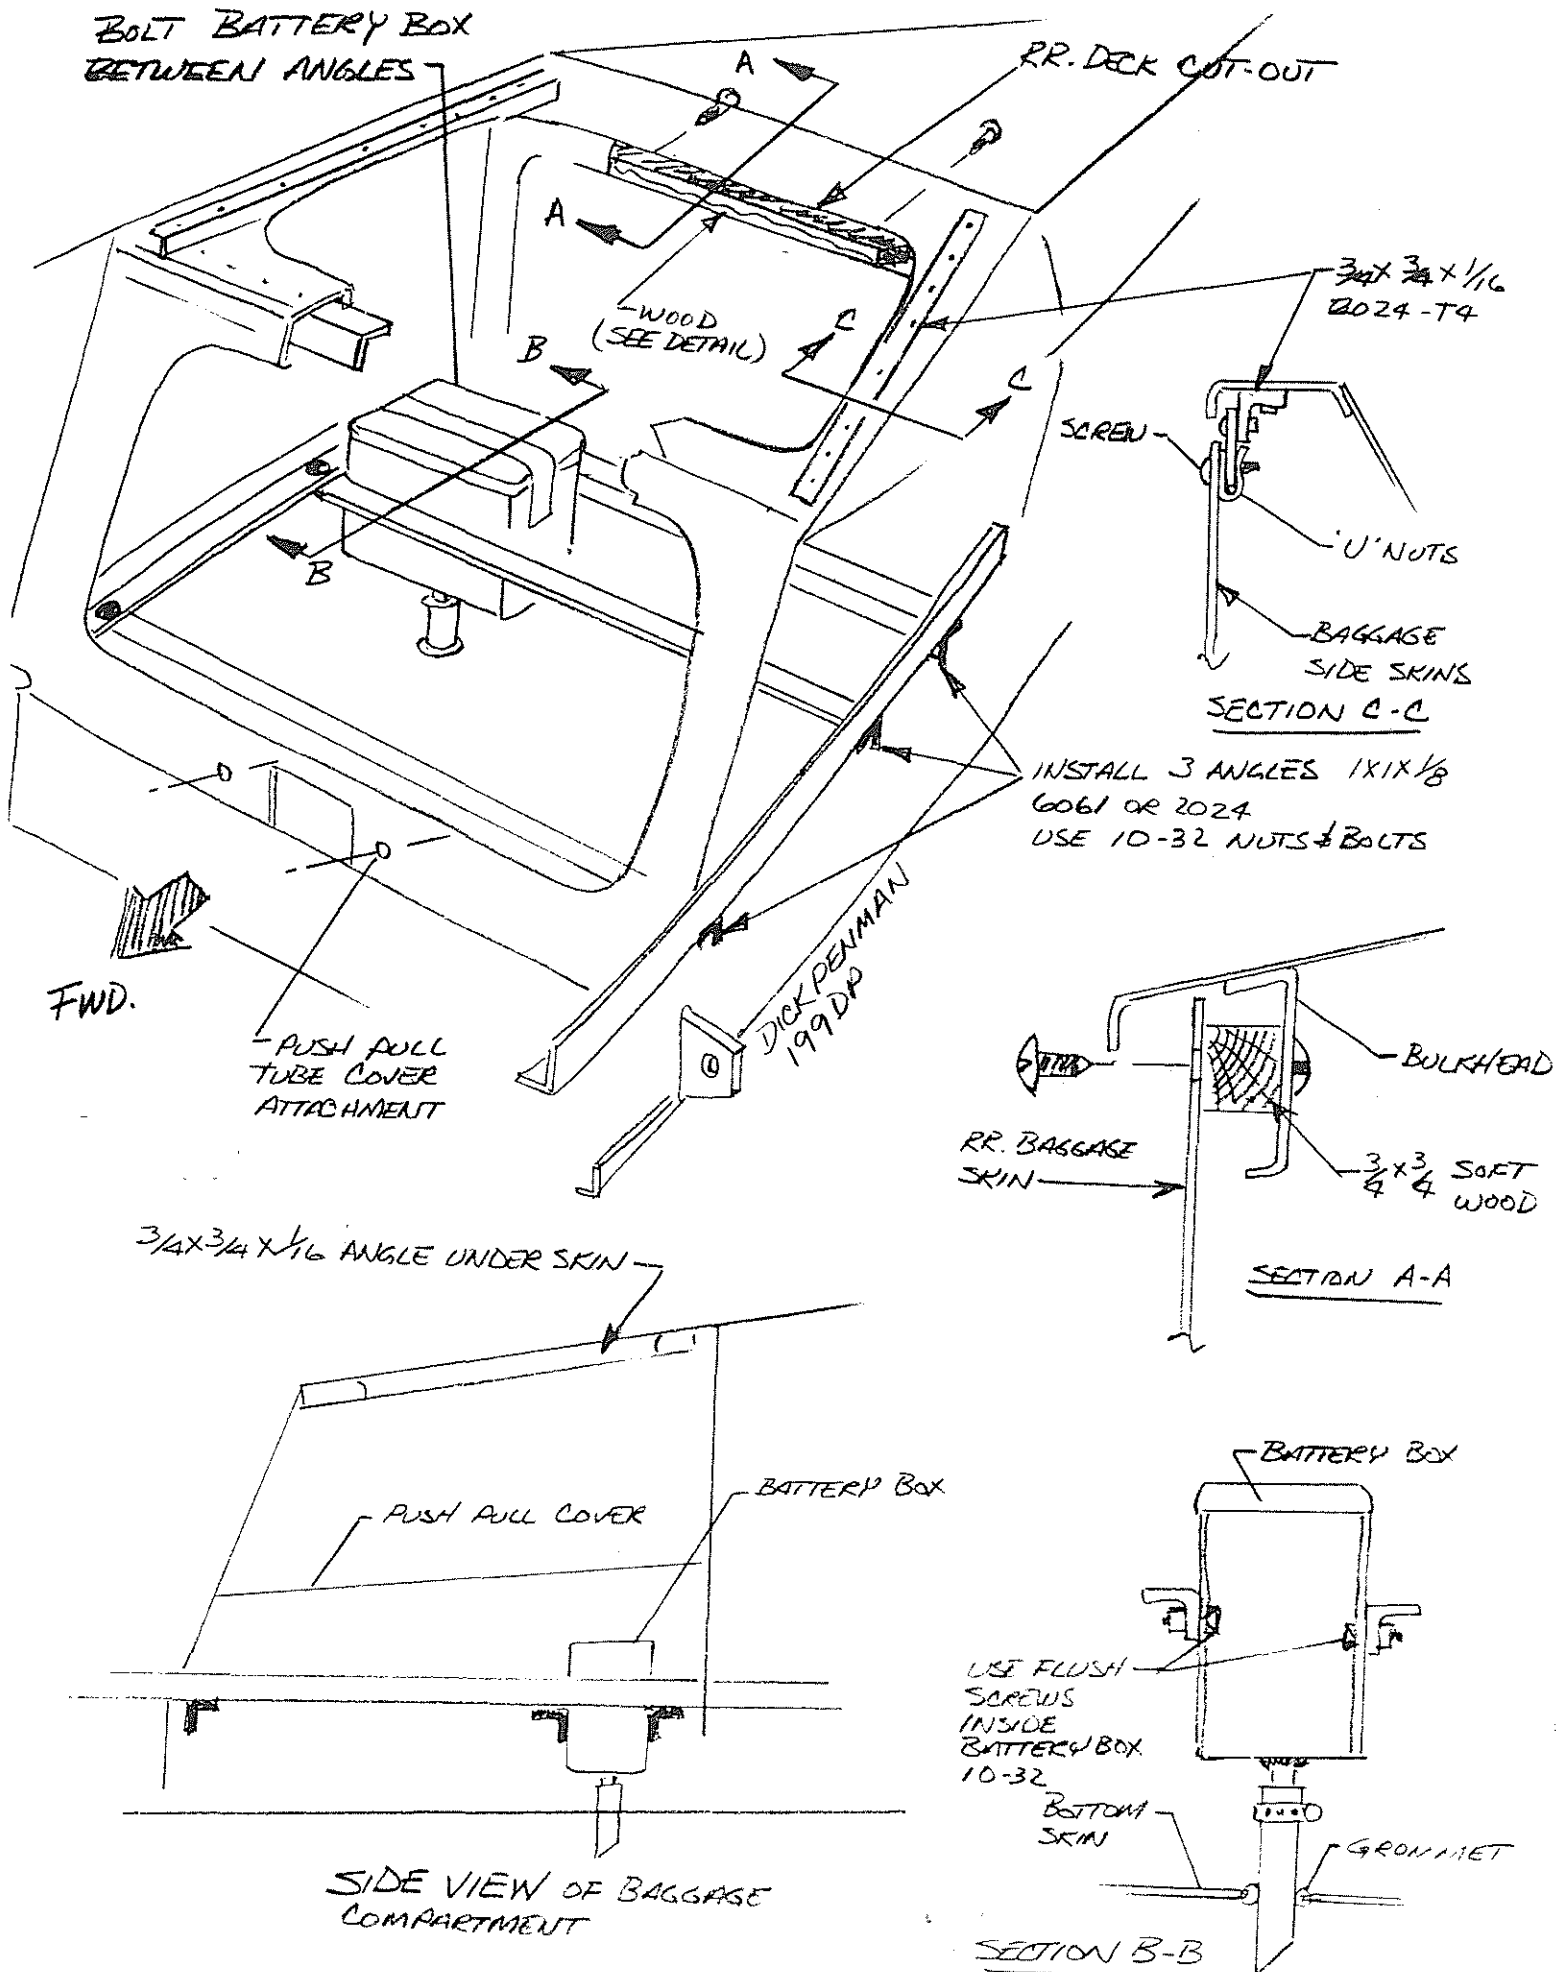 BOLT BATTERY BOX
BETWEEN ANGLES
A
RR. DECK CUT-OUT
A
WOOD
(SEE DETAIL)
B
C
C
B
3/4 X 3/4 X 1/16
2024-T4
SCREW
'U' NUTS
BAGGAGE
SIDE SKINS
SECTION C-C
INSTALL 3 ANGLES 1X1X1/8
6061 OR 2024
USE 10-32 NUTS & BOLTS
FWD.
PUSH PULL
TUBE COVER
ATTACHMENT
DICK PENMAN
199DP
BULKHEAD
RR. BAGGAGE
SKIN
3/4 X 3/4 SOFT
WOOD
SECTION A-A
3/4X3/4X1/16 ANGLE UNDER SKIN
PUSH PULL COVER
BATTERY BOX
SIDE VIEW OF BAGGAGE
COMPARTMENT
BATTERY BOX
USE FLUSH
SCREWS
INSIDE
BATTERY BOX
10-32
BOTTOM
SKIN
GROMMET
SECTION B-B